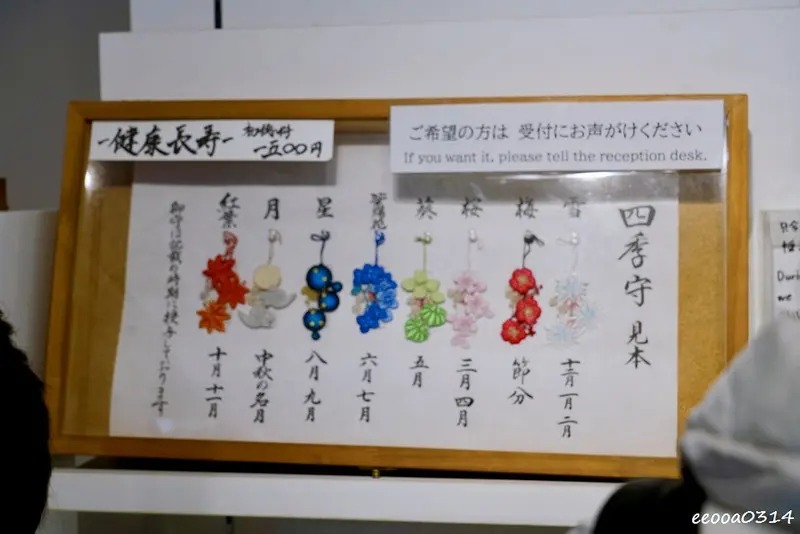 -健康長寿-
初穂料
一五〇〇円
ご希望の方は 受付にお声がけください
If you want it, please tell the reception desk.
四季守 見本
雪
十二月 一月 二月
梅
節分
桜
三月 四月
葵
五月
六月 七月
星
八月 九月
月
中秋の名月
紅葉
十月 十一月
御守は記載の時期に授与しております
eeooa0314